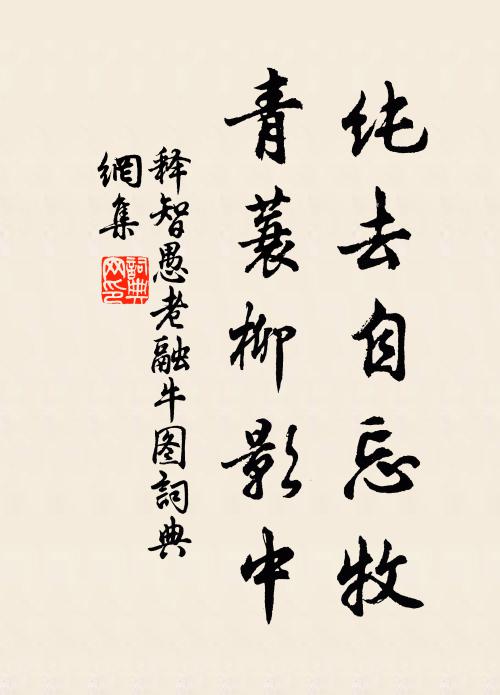 纯去自忘牧
青蓑柳影中
释智愚老融牛图词典
網集
詞典
网印